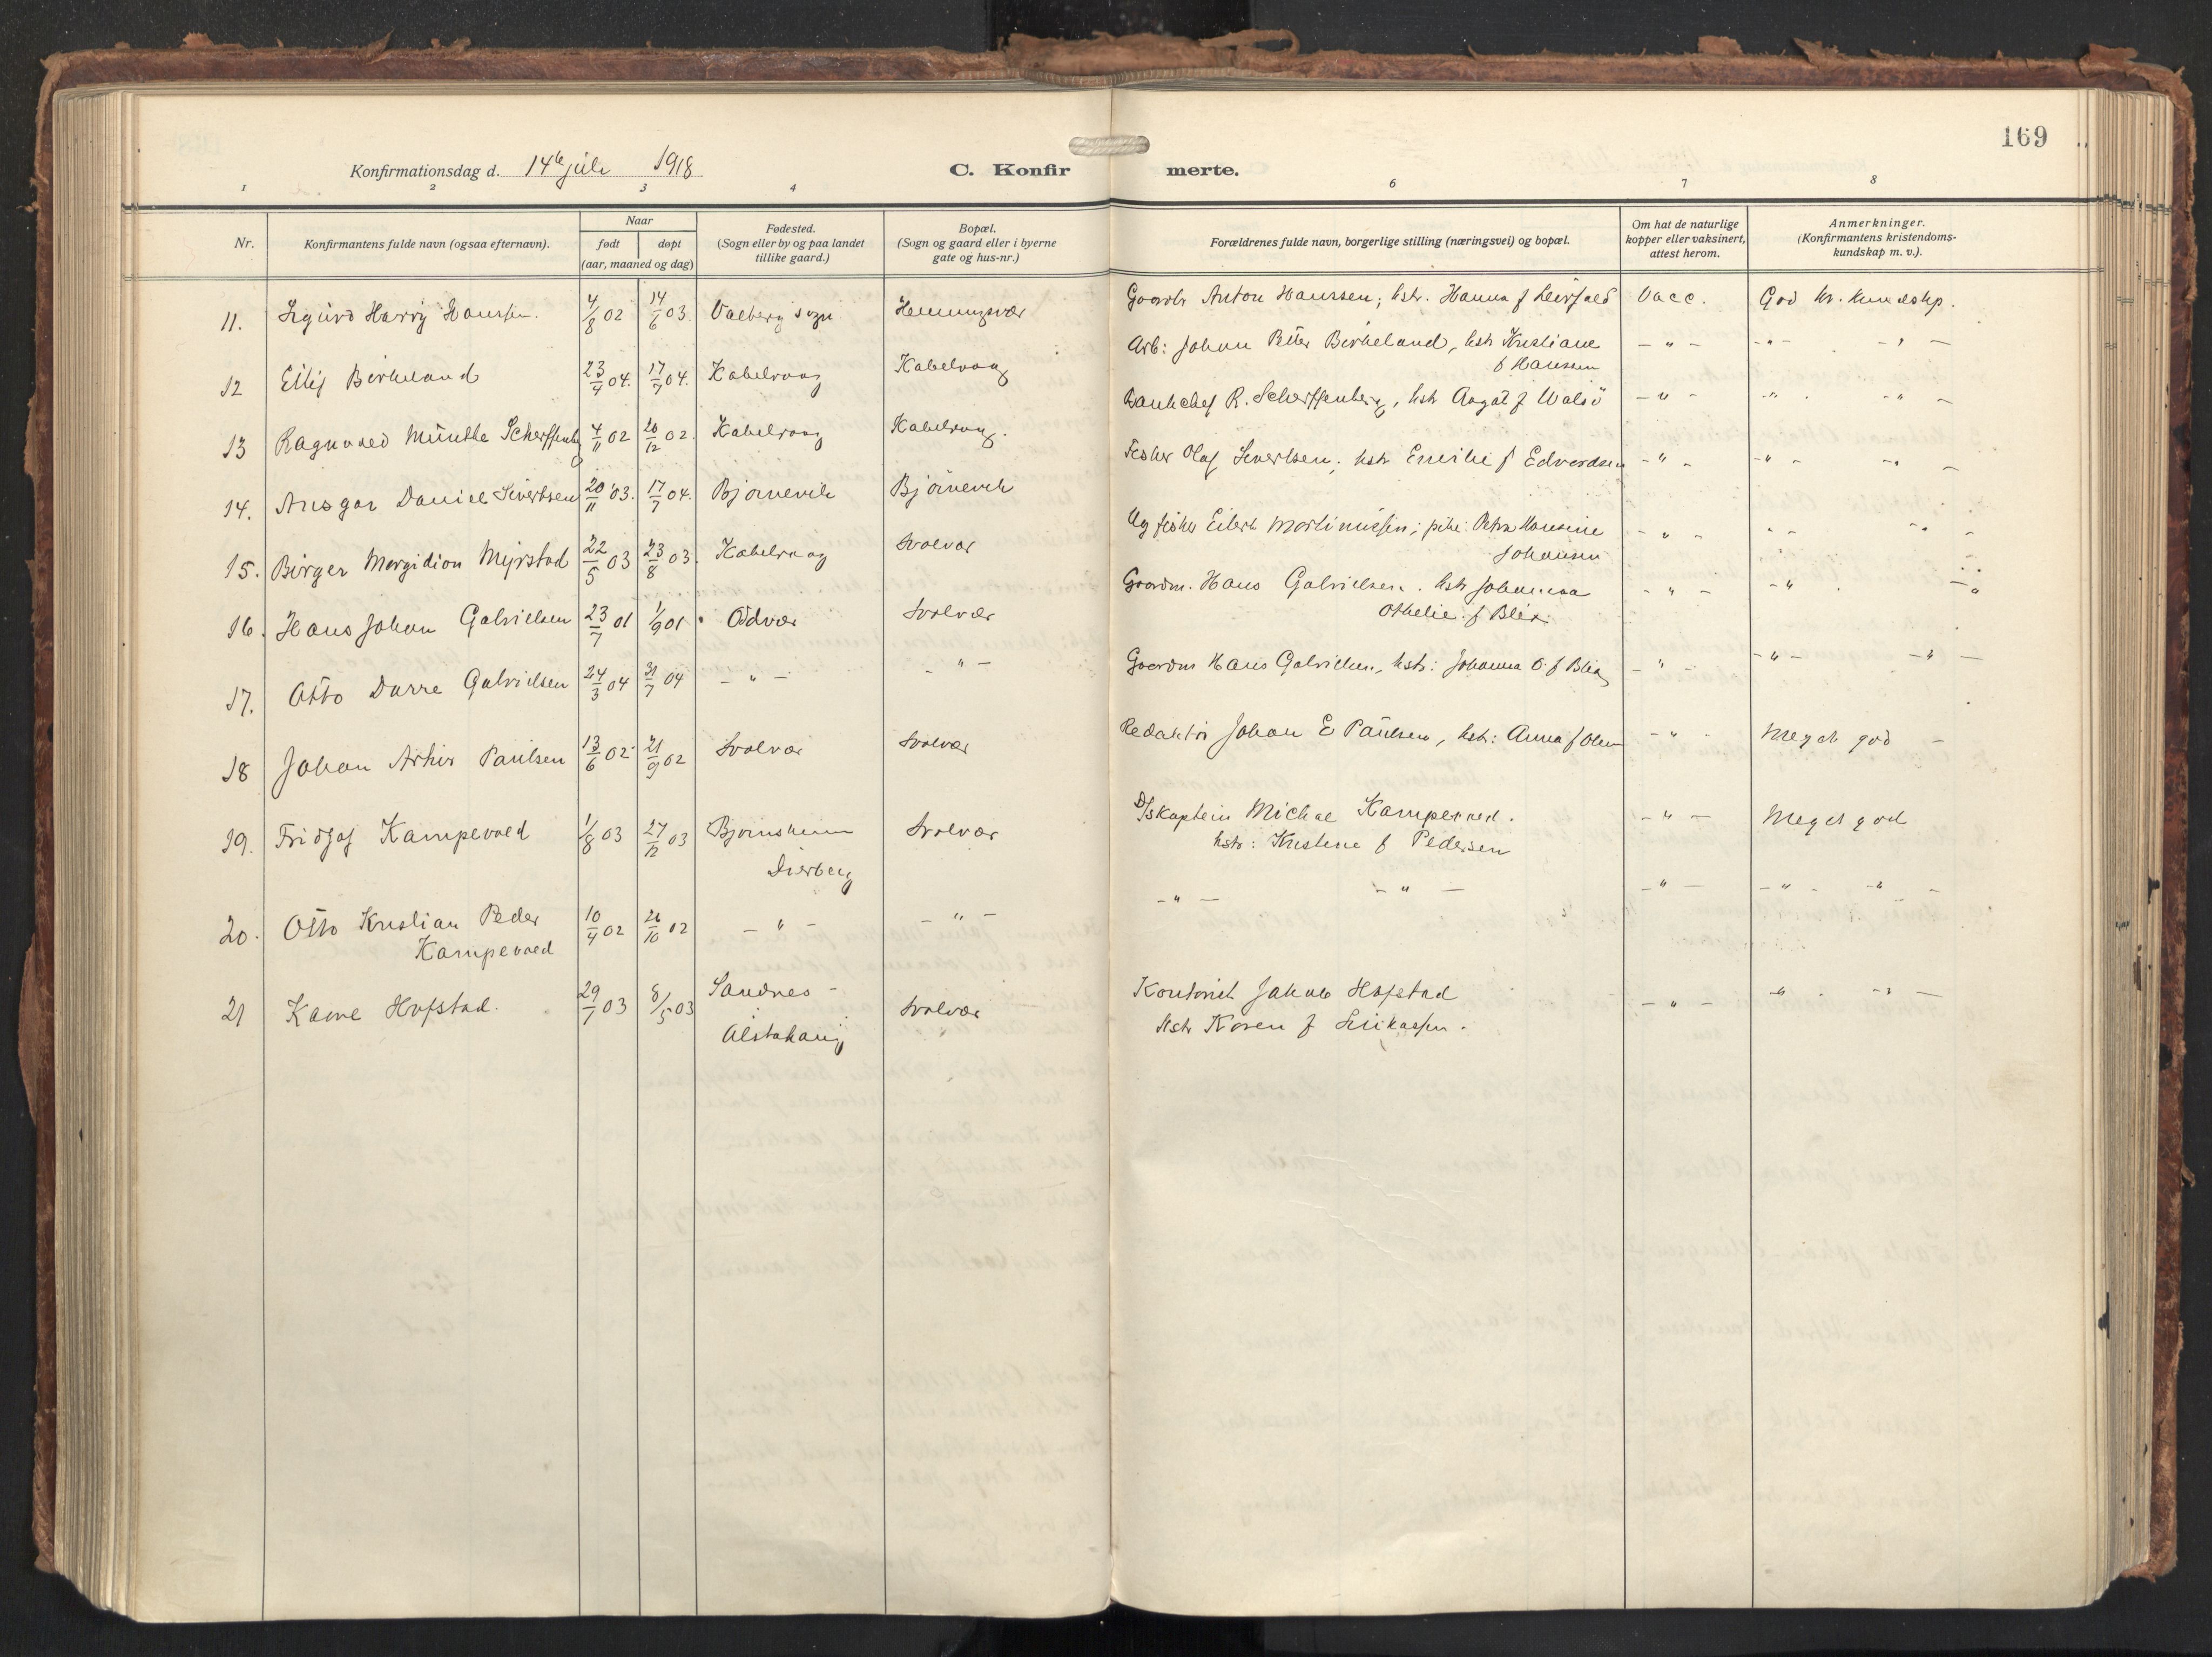 169
Konfirmationsdag d. 14de juli 1918
C. Konfirmerte.
1 2 3 4 6 7 8
Nr.
Konfirmantens fulde navn (ogsaa efternavn).
Naar
født døpt
(aar, maaned og dag)
Fødested.
(Sogn eller by og paa landet
tillike gaard.)
Bopæl.
(Sogn og gaard eller i byerne
gate og hus-nr.)
Forældrenes fulde navn, borgerlige stilling (næringsvei) og bopæl.
Om hat de naturlige
kopper eller vaksinert,
attest herom.
Anmerkninger.
(Konfirmantens kristendoms-
kundskap m. v.).
11. Sigurd Harry Hanssen. 4/8 02 14/6 03. Valberg sogn Henningsvær Gaardbr Anton Hanssen; hstr. Hanna f Leirfald Vacc. God kr. kundskp.
12 Eilif Birkeland 23/4 04. 17/7 04. Kabelvaag Kabelvaag Arb: Johan Peter Birkeland, hstr Kristiane
f Hansen - " - - " - - " -
13 Ragnvald Münthe Scherffenberg 4/11 02 20/12 02. Kabelvaag Kabelvaag. Bankchef R. Scherffenberg, hstr Aagot f Walsö - " - - " - - " -
14. Ansgar Daniel Sivertsen 20/11 03. 17/7 04. Bjørnevik Bjørnevik Fisker Olaf Sivertsen, hstr Emilie f Edvardsen - " - - " - - " -
15. Birger Margidion Myrstad 22/5 03 23/8 03. Kabelvaag Svolvær Ug fisker Eilert Martinussen; pike: Petra Hansine
Johansen - " - - " - - " -
16. Hans Johan Gabrielsen 23/7 01 1/9 01 Oddvær Svolvær Gaardm. Hans Gabrielsen. hstr Johanna
Othelie f Blix. - " - - " - - " -
17. Otto Darre Gabrielsen 24/3 04 31/7 04 - " - - " - Gaardm Hans Gabrielsen, hstr: Johanna O. f Blix - " - - " - - " -
18 Johan Arthur Paulsen 13/6 02 21/9 02 Svolvær Svolvær Redaktør Johan E Paulsen, hstr: Anna f Olsen - " - Meget god -
19. Fridjof Kampevold 1/8 03 27/12 03 Bjørnsheim
Dverberg Svolvær D/Skaptein Michal Kampevold.
hstr: Kristine f Pedersen - " - Meget god
20. Otto Kristian Peder
Kampevold 10/4 02 26/10 02 - " - - " - - " - - " - - " - - " - - " -
21 Kaare Hofstad. 29/1 03 8/5 03 Sandnes -
Alstahaug Svolvær Kontorist Jakob Hofstad
hstr Karen f Erikassen. - " - - " - - " -